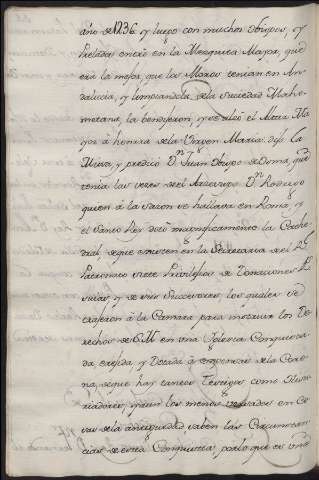 año de 1236. y luego con muchos Obispos, y
Prelados entró en la Mezquita Mayor, que
era la mejor, que los Moros tenian en An-
dalucia, y limpiandola de la suciedad Maho-
metana, la bendijeron, y se alzó el Altar Ma-
yor á honrra de la Virgen Maria: dijo la
Misa, y predicó Dn. Juan Obispo de Osma, que
tenia las veces del Arzobispo Dn. Rodrigo
quien á la sazon se hallava en Roma, y
el Santo Rey dotó magnificamente la Cathe-
dral, de que existen en la Secretaria del Rl.
Patronato siete Privilegios de Donaciones
suias, y de sus Succesores, los quales se
trajeron á la Camara para instruir los De-
rechos de S.M. en una Iglesia Conquista-
da erejida, y Dotada á expensas de la Coro-
na, de que hay tantos Testigos como Histo-
riadores, y aun los menos versados en Co-
sas de la antiguedad saben las Circunstan-
cias de esta Conquista, por lo que es una